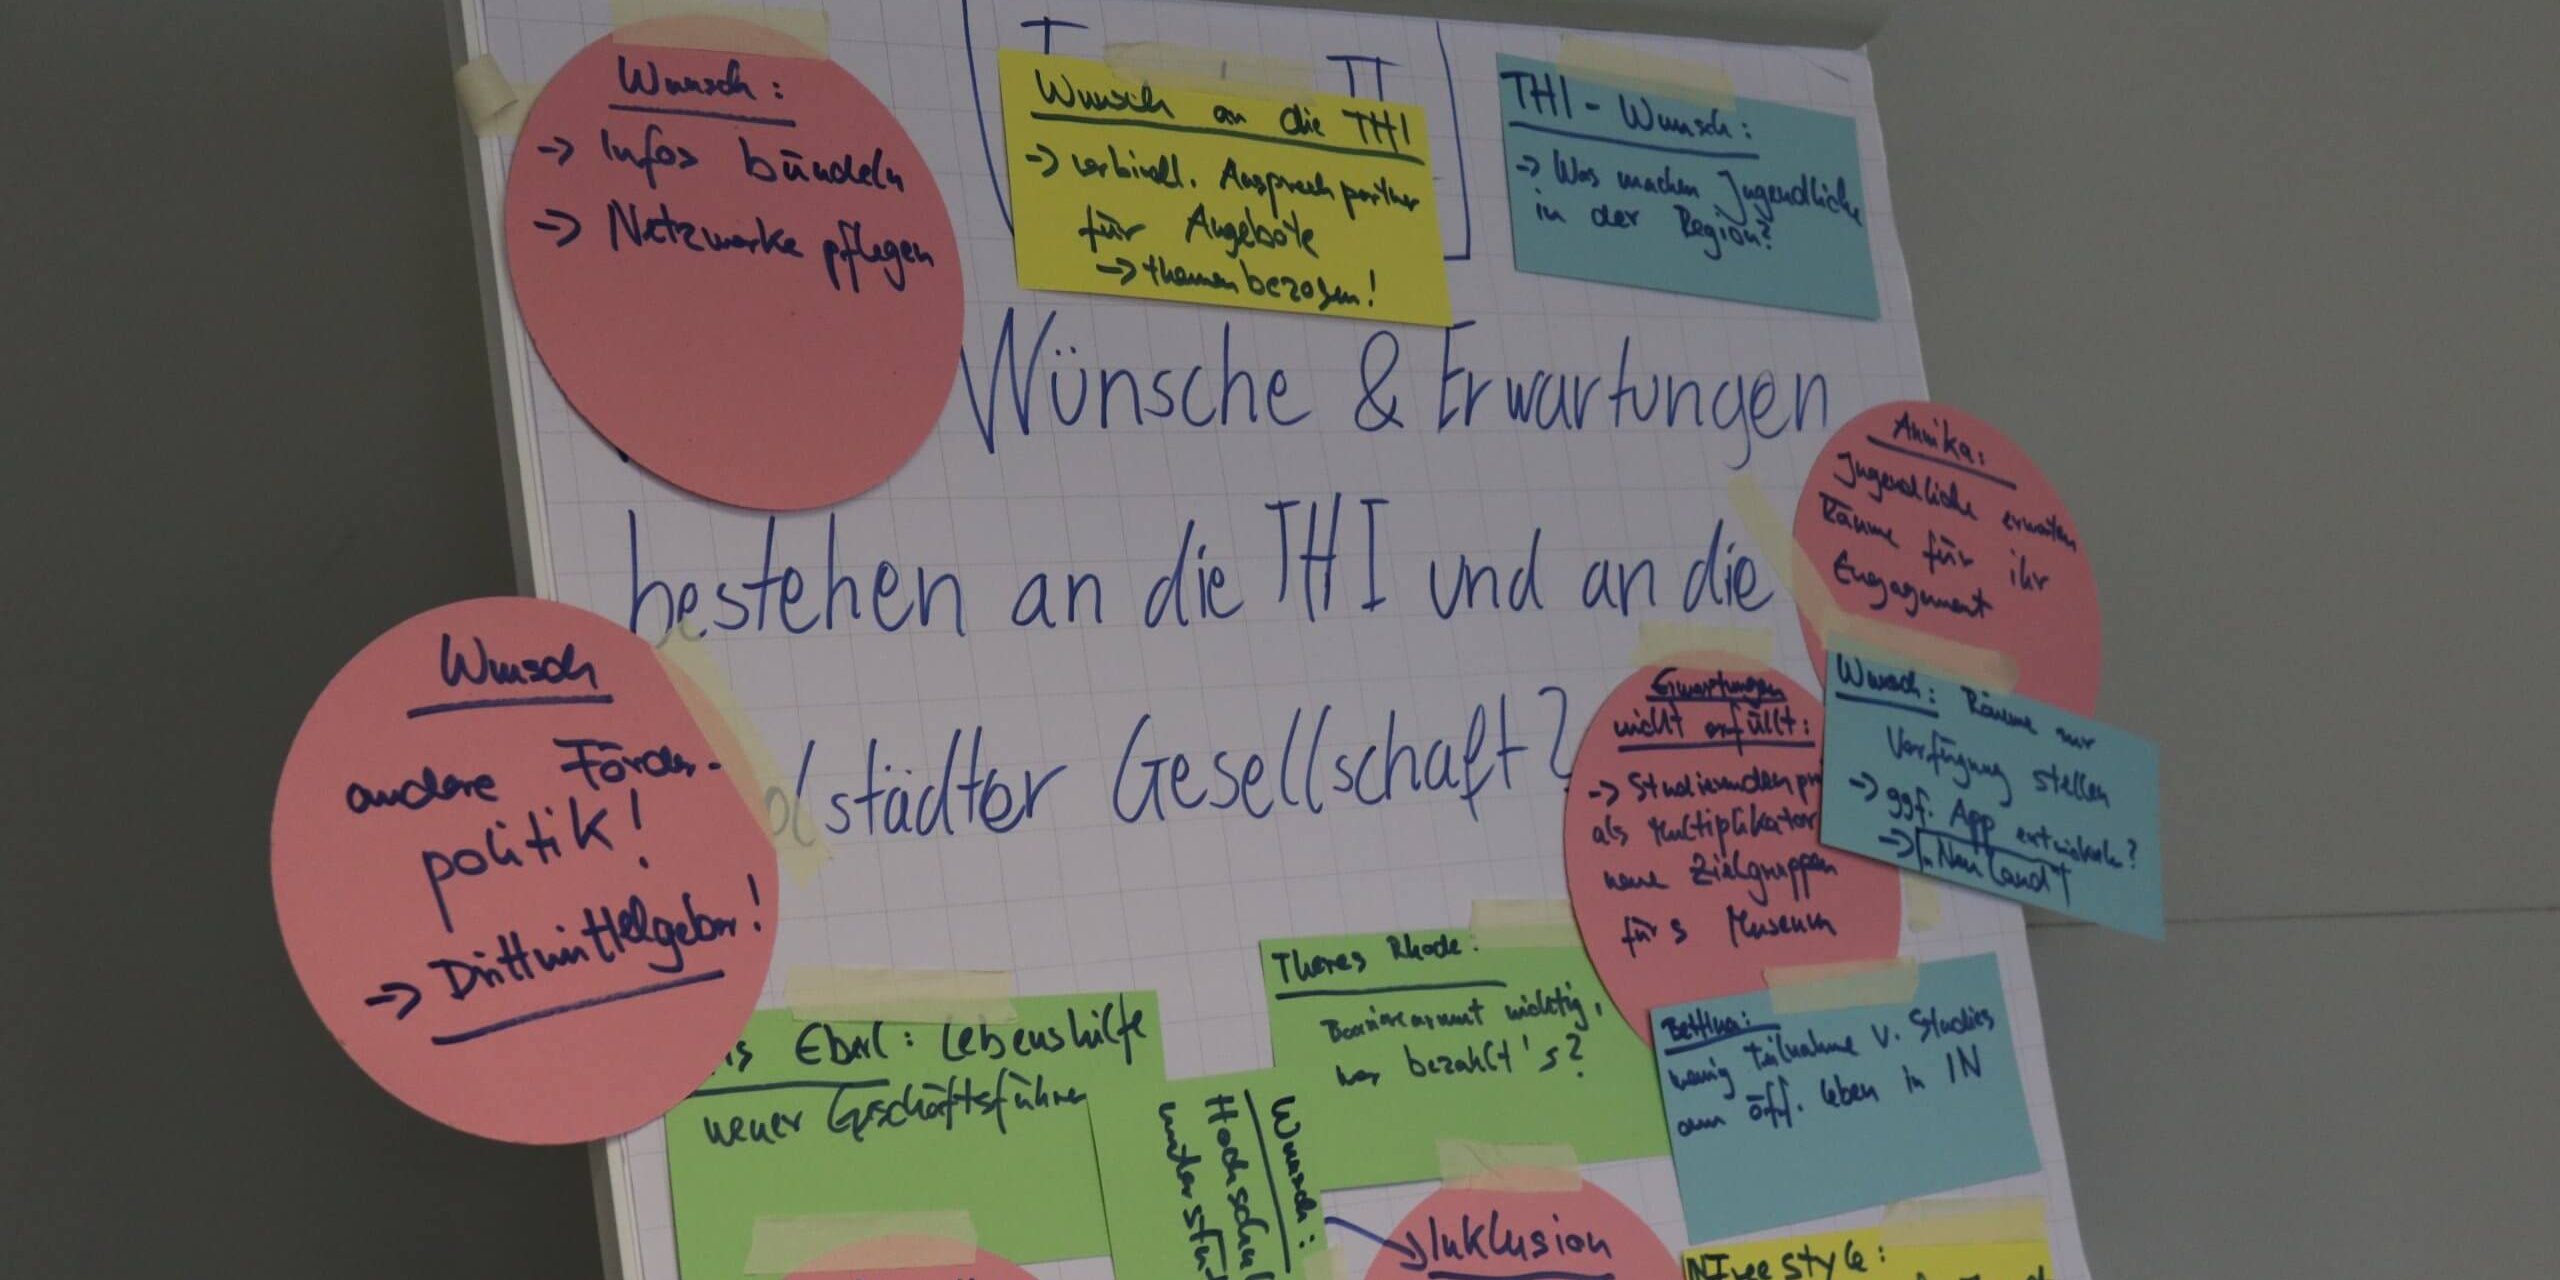 Wunsch:
-> Infos bündeln
-> Netzwerke pflegen
Wunsch an die THI
-> verbindl. Ansprechpartner
für Angebote
-> themenbezogen!
THI-Wunsch:
-> Was machen Jugendliche
in der Region?
Wünsche & Erwartungen
bestehen an die THI und an die
städter Gesellschaft?
Annika:
Jugendliche erwarten
Räume für ihr
Engagement
Wunsch
andere Förder-
politik!
-> Drittmittelgeber!
Erwartungen
nicht erfüllt:
-> Studierenden
als Multiplikator
neue Zielgruppen
für's Museum
Wunsch: Räume zur
Verfügung stellen
-> ggf. App entwickeln?
-> "Neuland"
Eberl: Lebenshilfe
neuer Geschäftsführer
Theres Rhode:
Barrierearmut wichtig,
wer bezahlt's?
Bettina:
wenig Teilnahme v. Studies
am öff. Leben in IN
Wunsch:
Inklusion